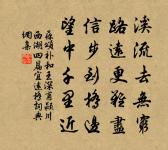 溪流去無窮
路遠更難盡
信步到橋邊
望中千里近
蘇頌和王深甫潁川
西湖四篇宜遠橋詞典
詞集